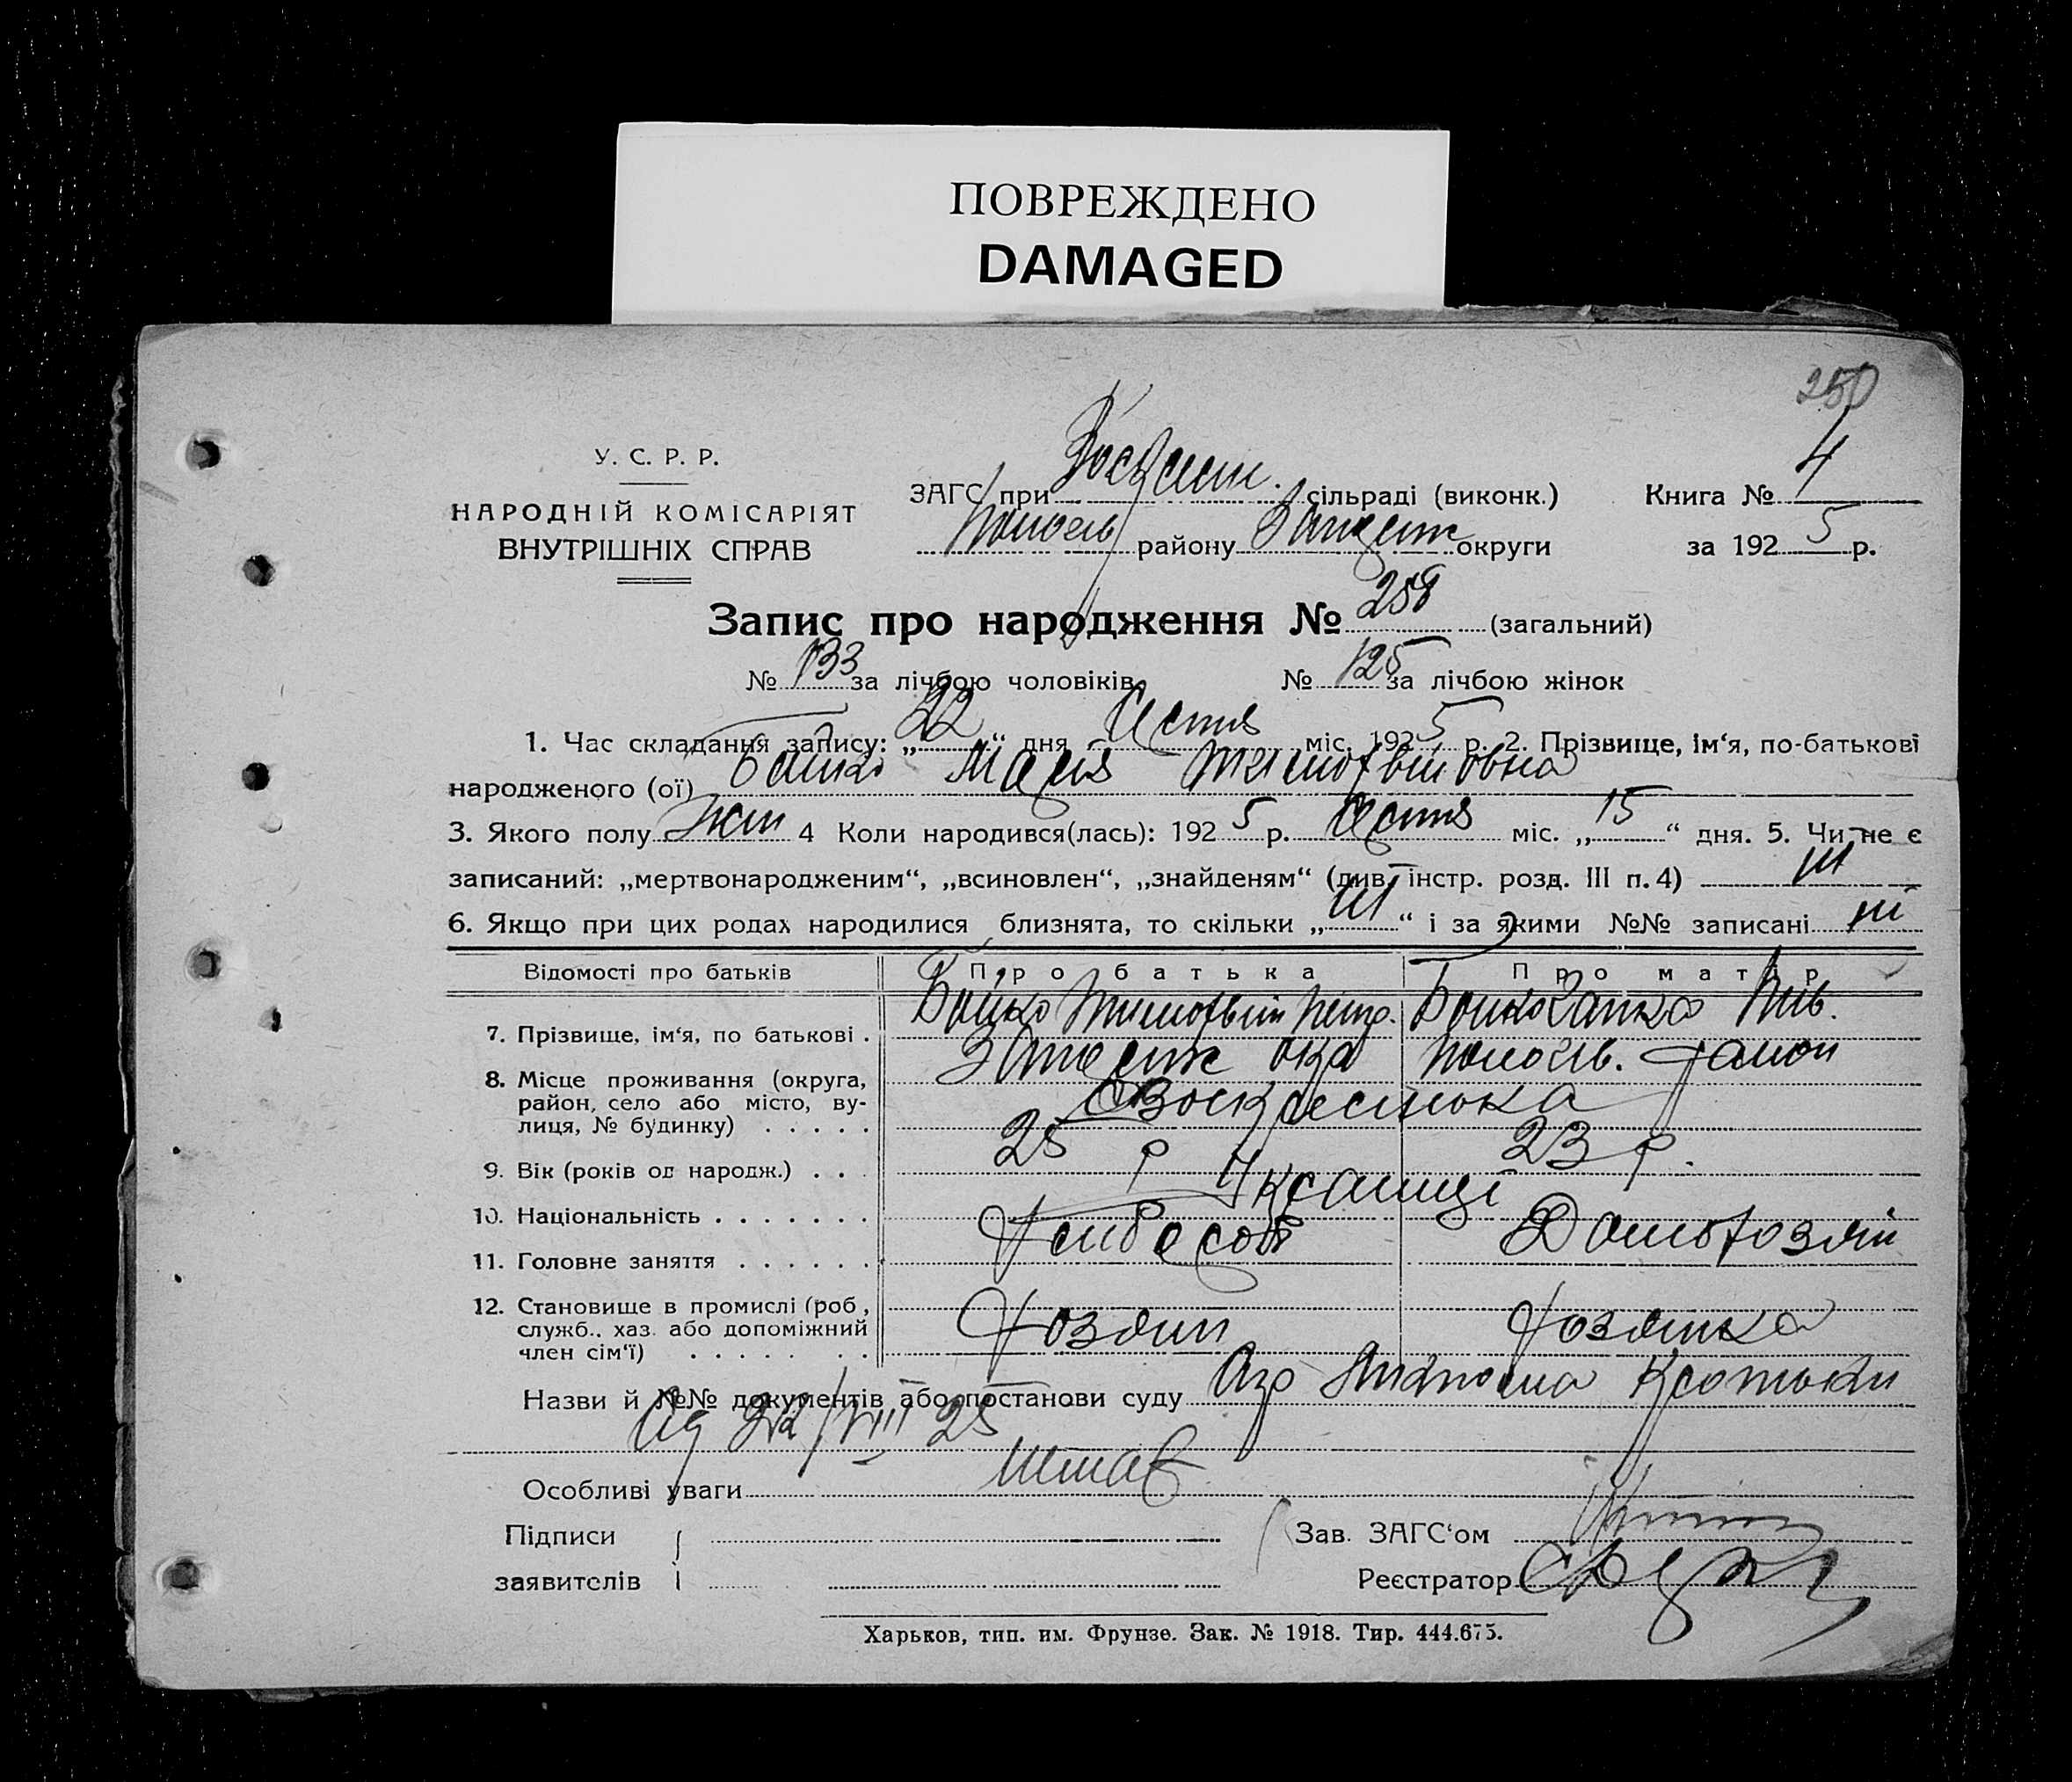 ПОВРЕЖДЕНО
DAMAGED
250
У. С. Р. Р.
НАРОДНІЙ КОМІСАРІЯТ
ВНУТРІШНІХ СПРАВ
ЗАГС при сільраді (виконк.)
району округи
Книга № 4
за 1925 р.
Запис про народження № 258 (загальний)
№ 133 за лічбою чоловіків № 125 за лічбою жінок
1. Час складання запису: „22“ дня міс. 1925 р. 2. Прізвище, ім‘я, по-батькові
народженого (ої) Бойко Марія
3. Якого полу жін 4 Коли народився(лась): 1925 р. міс. „15“ дня. 5. Чи не є
записаний: „мертвонародженим“, „всиновлен“, „знайденям“ (див. інстр. розд. III п. 4) ні
6. Якщо при цих родах народилися близнята, то скільки „ні“ і за якими №№ записані ні
Відомості про батьків Про батька Про матір
7. Прізвище, ім‘я, по батькові . Бойко Тимофвій Петр. Бойко Ганка
8. Місце проживання (округа, район, село або місто, ву-лиця, № будинку) . . . . . Запоріж окр Пологів. район
Воскресенка
9. Вік (років од народж.) . . . 25 р 23 р.
10. Національність . . . . . . . Українці
11. Головне заняття . . . . . . Хлібороб Домохозяй
12. Становище в промислі (роб., служб., хаз. або допоміжний член сім‘ї) . . . . . . . Хозяин Хозяйка
Назви й №№ документів або постанови суду
22/VIII 25
Особливі уваги Немає
Підписи
заявителів
Зав. ЗАГС‘ом
Реєстратор
Харьков, тип. им. Фрунзе. Зак. № 1918. Тир. 444.675.